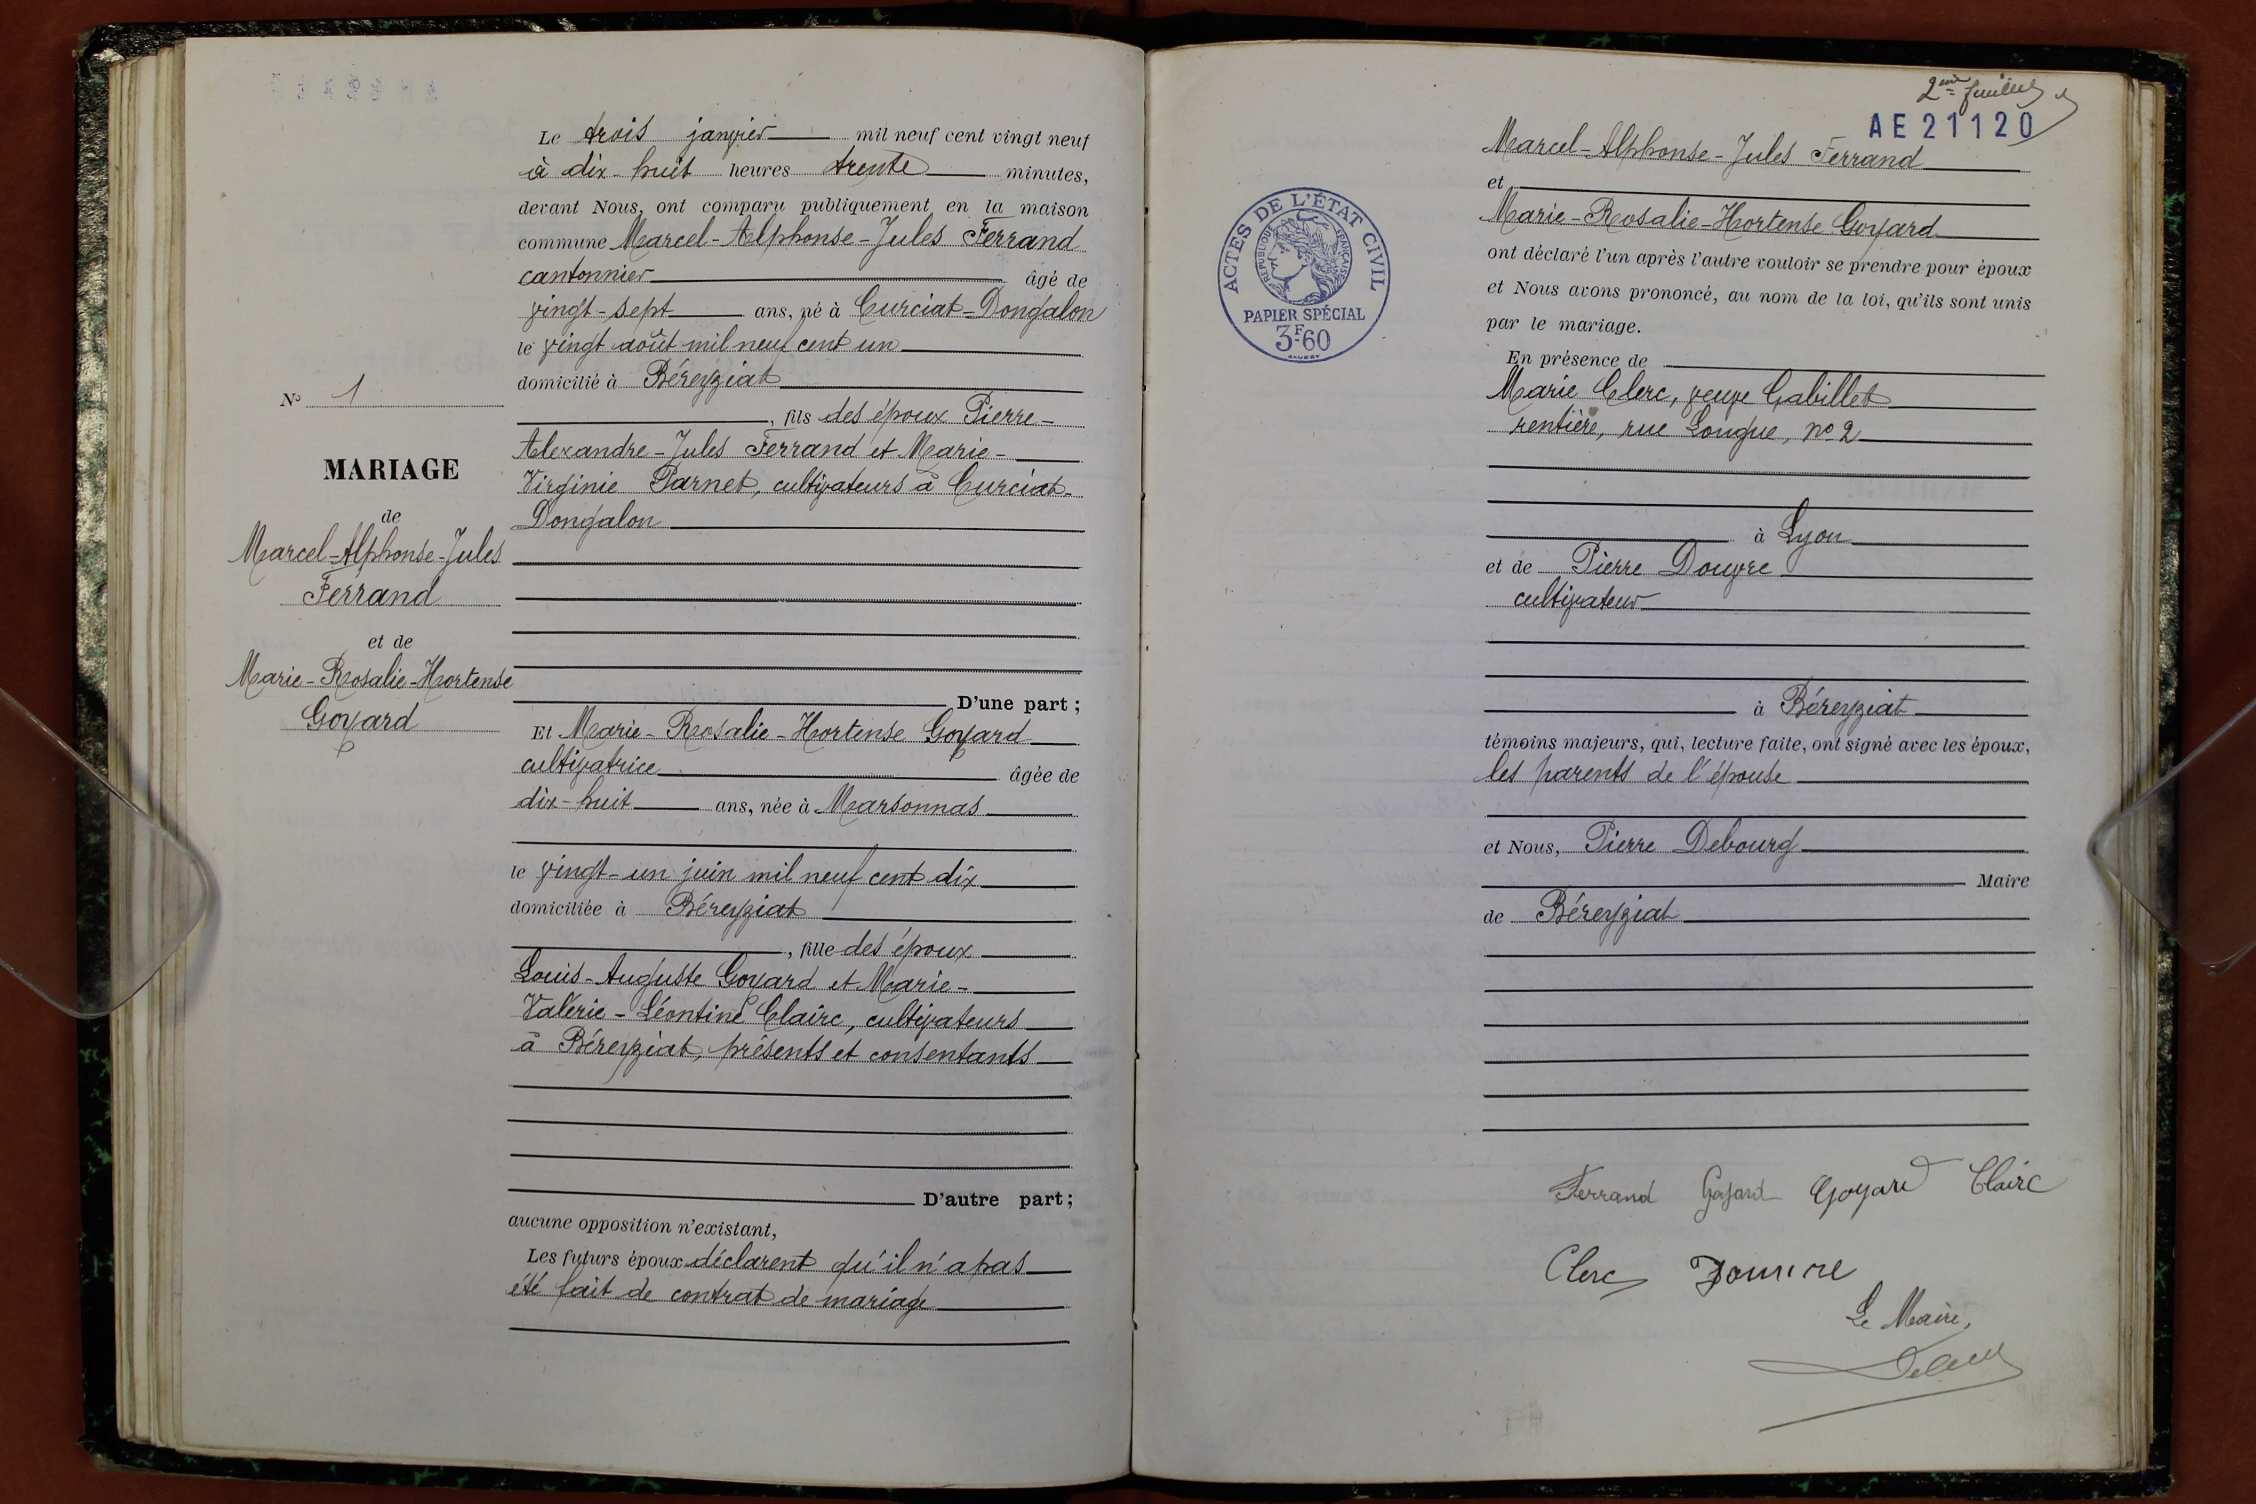 Le trois janvier mil neuf cent vingt neuf
à dix-huit heures trente minutes,
devant Nous, ont comparu publiquement en la maison
commune Marcel-Alphonse-Jules Ferrand
cantonnier âgé de
vingt-sept ans, né à Curciat-Dongalon
le vingt août mil neuf cent un
domicilié à Béreyziat
, fils des époux Pierre-
Alexandre-Jules Ferrand et Marie-
Virginie Parnet, cultivateurs à Curciat-
Dongalon
D'une part ;
Et Marie-Rosalie-Hortense Goyard
cultivatrice âgée de
dix-huit ans, née à Marsonnas
le vingt-un juin mil neuf cent dix
domiciliée à Béreyziat
, fille des époux
Louis-Auguste Goyard et Marie-
Valérie-Léontine Clairc, cultivateurs
à Béreyziat, présents et consentants
D'autre part ;
aucune opposition n'existant,
Les futurs époux déclarent qu'il n'a pas
été fait de contrat de mariage
No 1
MARIAGE
de
Marcel-Alphonse-Jules
Ferrand
et de
Marie-Rosalie-Hortense
Goyard
2me
AE21120
ACTES DE L'ÉTAT CIVIL
RÉPUBLIQUE FRANÇAISE
PAPIER SPÉCIAL
3F60
Marcel-Alphonse-Jules Ferrand
et
Marie-Rosalie-Hortense Goyard
ont déclaré l'un après l'autre vouloir se prendre pour époux
et Nous avons prononcé, au nom de la loi, qu'ils sont unis
par le mariage.
En présence de
Marie Clerc, veuve Gabillet
rentière, rue Longue, no 2
à Lyon
et de Pierre Douvre
cultivateur
à Béreyziat
témoins majeurs, qui, lecture faite, ont signé avec les époux,
les parents de l'épouse
et Nous, Pierre Debourg
Maire
de Béreyziat
Ferrand Goyard Goyard Clairc
Clerc Douvre
Le Maire,